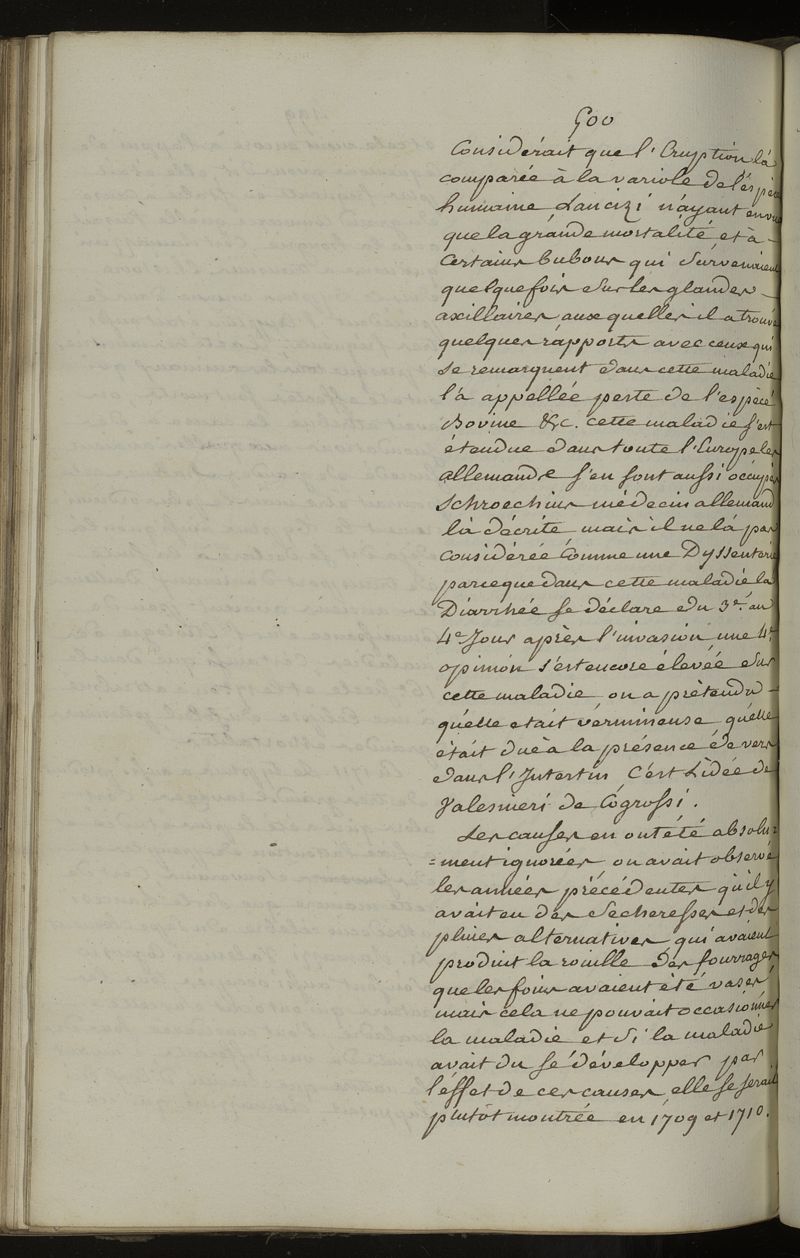 500
Considérait que l'Eruption là
comparée à la variole de l'éspèce
humaine Lancizi n'ayant en vue
que la grande mortalité, et à -
Certains bubons qui Survenaient
quelquefois Sur les glandes -
axillaires, auxquelles il a trouvé
quelques rapports avec ceux qui
se remarquent dans cette maladie
l'a appellée peste de l'espèce
Bovine &c. cette maladie s'est
étendue dans toute l'Europe les
allemands s'en sont aussi occupés
Schroechius médecin allemand
là décrite, mais il ne la pas
considérée Comme une Dyssenterie
parceque dans cette maladie la
Diarrhée se déclare du 3e. au
4e Jour après l'invasion, une 4e.
opinion s'est encore élevée Sur
cette maladie on a prétendu -
qu'elle etait vermineuse, qu'elle
était due à la présence de vers
dans l'Intestin C'est L'idée de
Valesnieri de Cogrossi.
Les causes en ont été absolu=
=ment ignorées, on avait observé
les années précédentes qu'il y
avait eu des Secheresses et des
pluies alternatives qui avaient
produit la rouille Des fourrages,
que les foins avaient été vasés,
mais cela ne pouvait occasionner
la maladie et Si la maladie
avait du se développer par
l'effet de ces causes, elle se serait
plutôt montrée en 1709 et 1710.